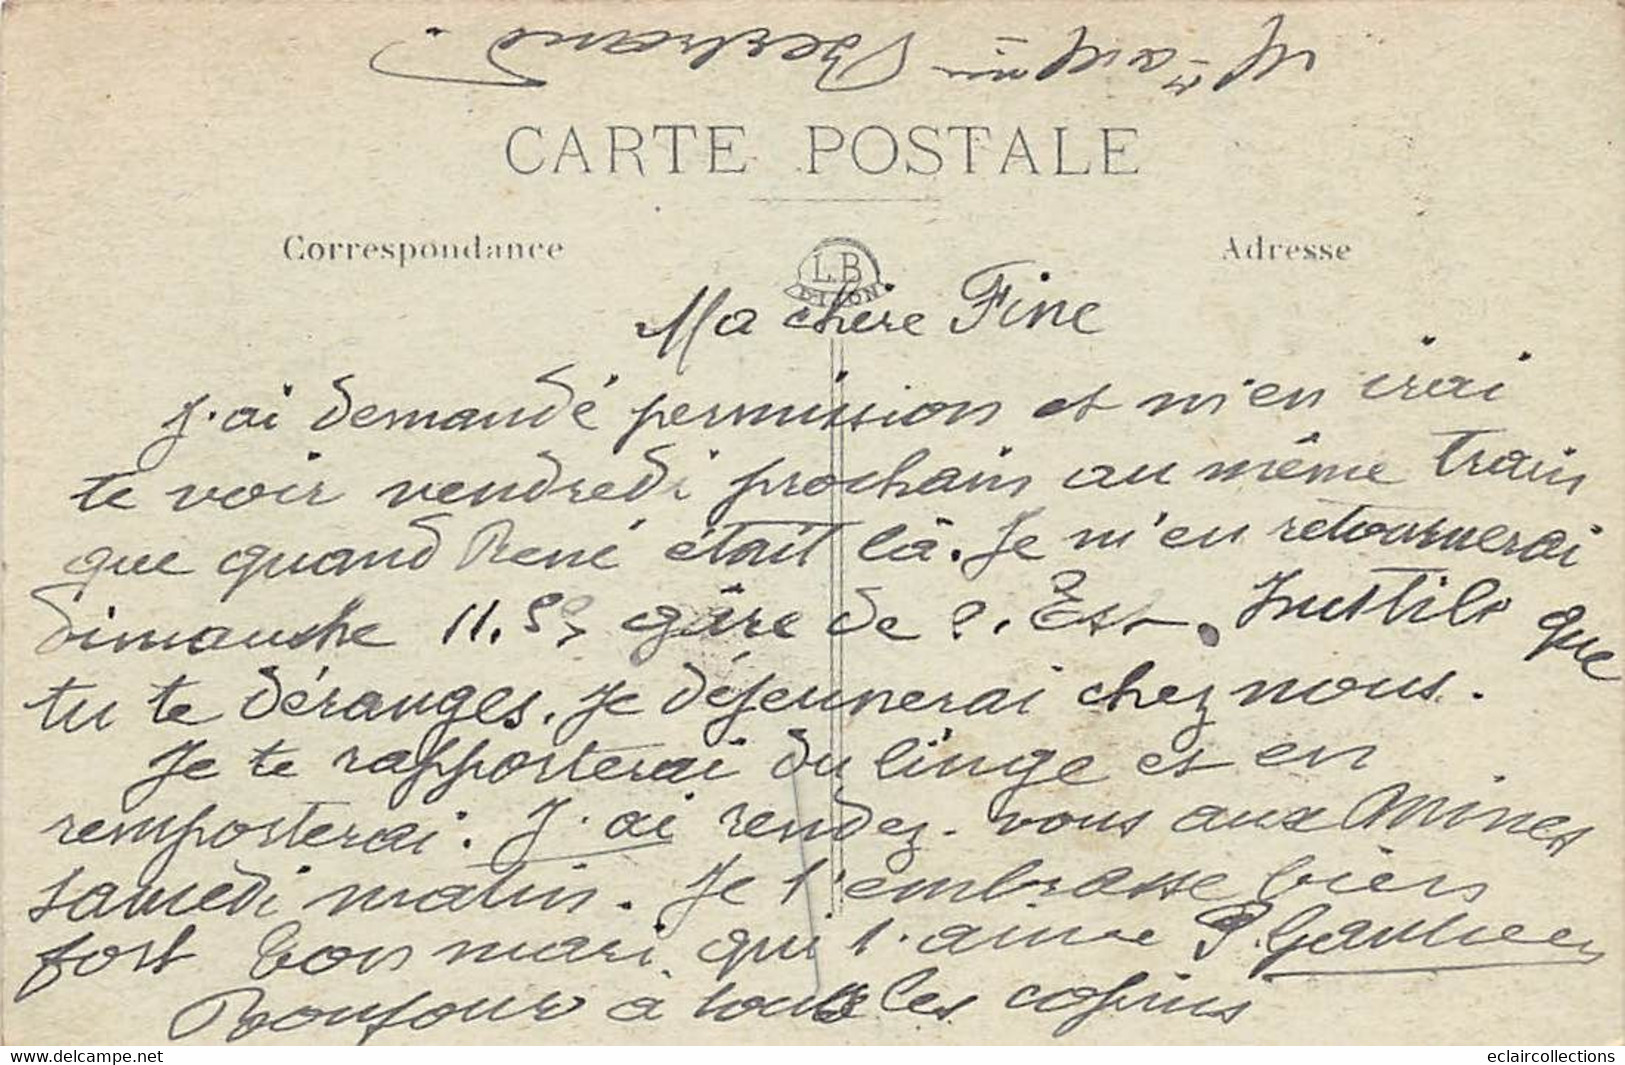 CARTE POSTALE
Correspondance
Adresse
LB
DIJON
Ma chère Fine
J'ai demandé permission et m'en irai
te voir vendredi prochain au même train
que quand René était là. Je m'en retournerai
dimanche 11. gare de Est. Inutile que
tu te déranges. Je déjeunerai chez nous.
Je te rapporterai du linge et en
remporterai. J'ai rendez-vous aux Mines
samedi matin. Je t'embrasse bien
fort ton mari qui t'aime P. Gauthier
Bonjour à tous les copins
eclaircollections